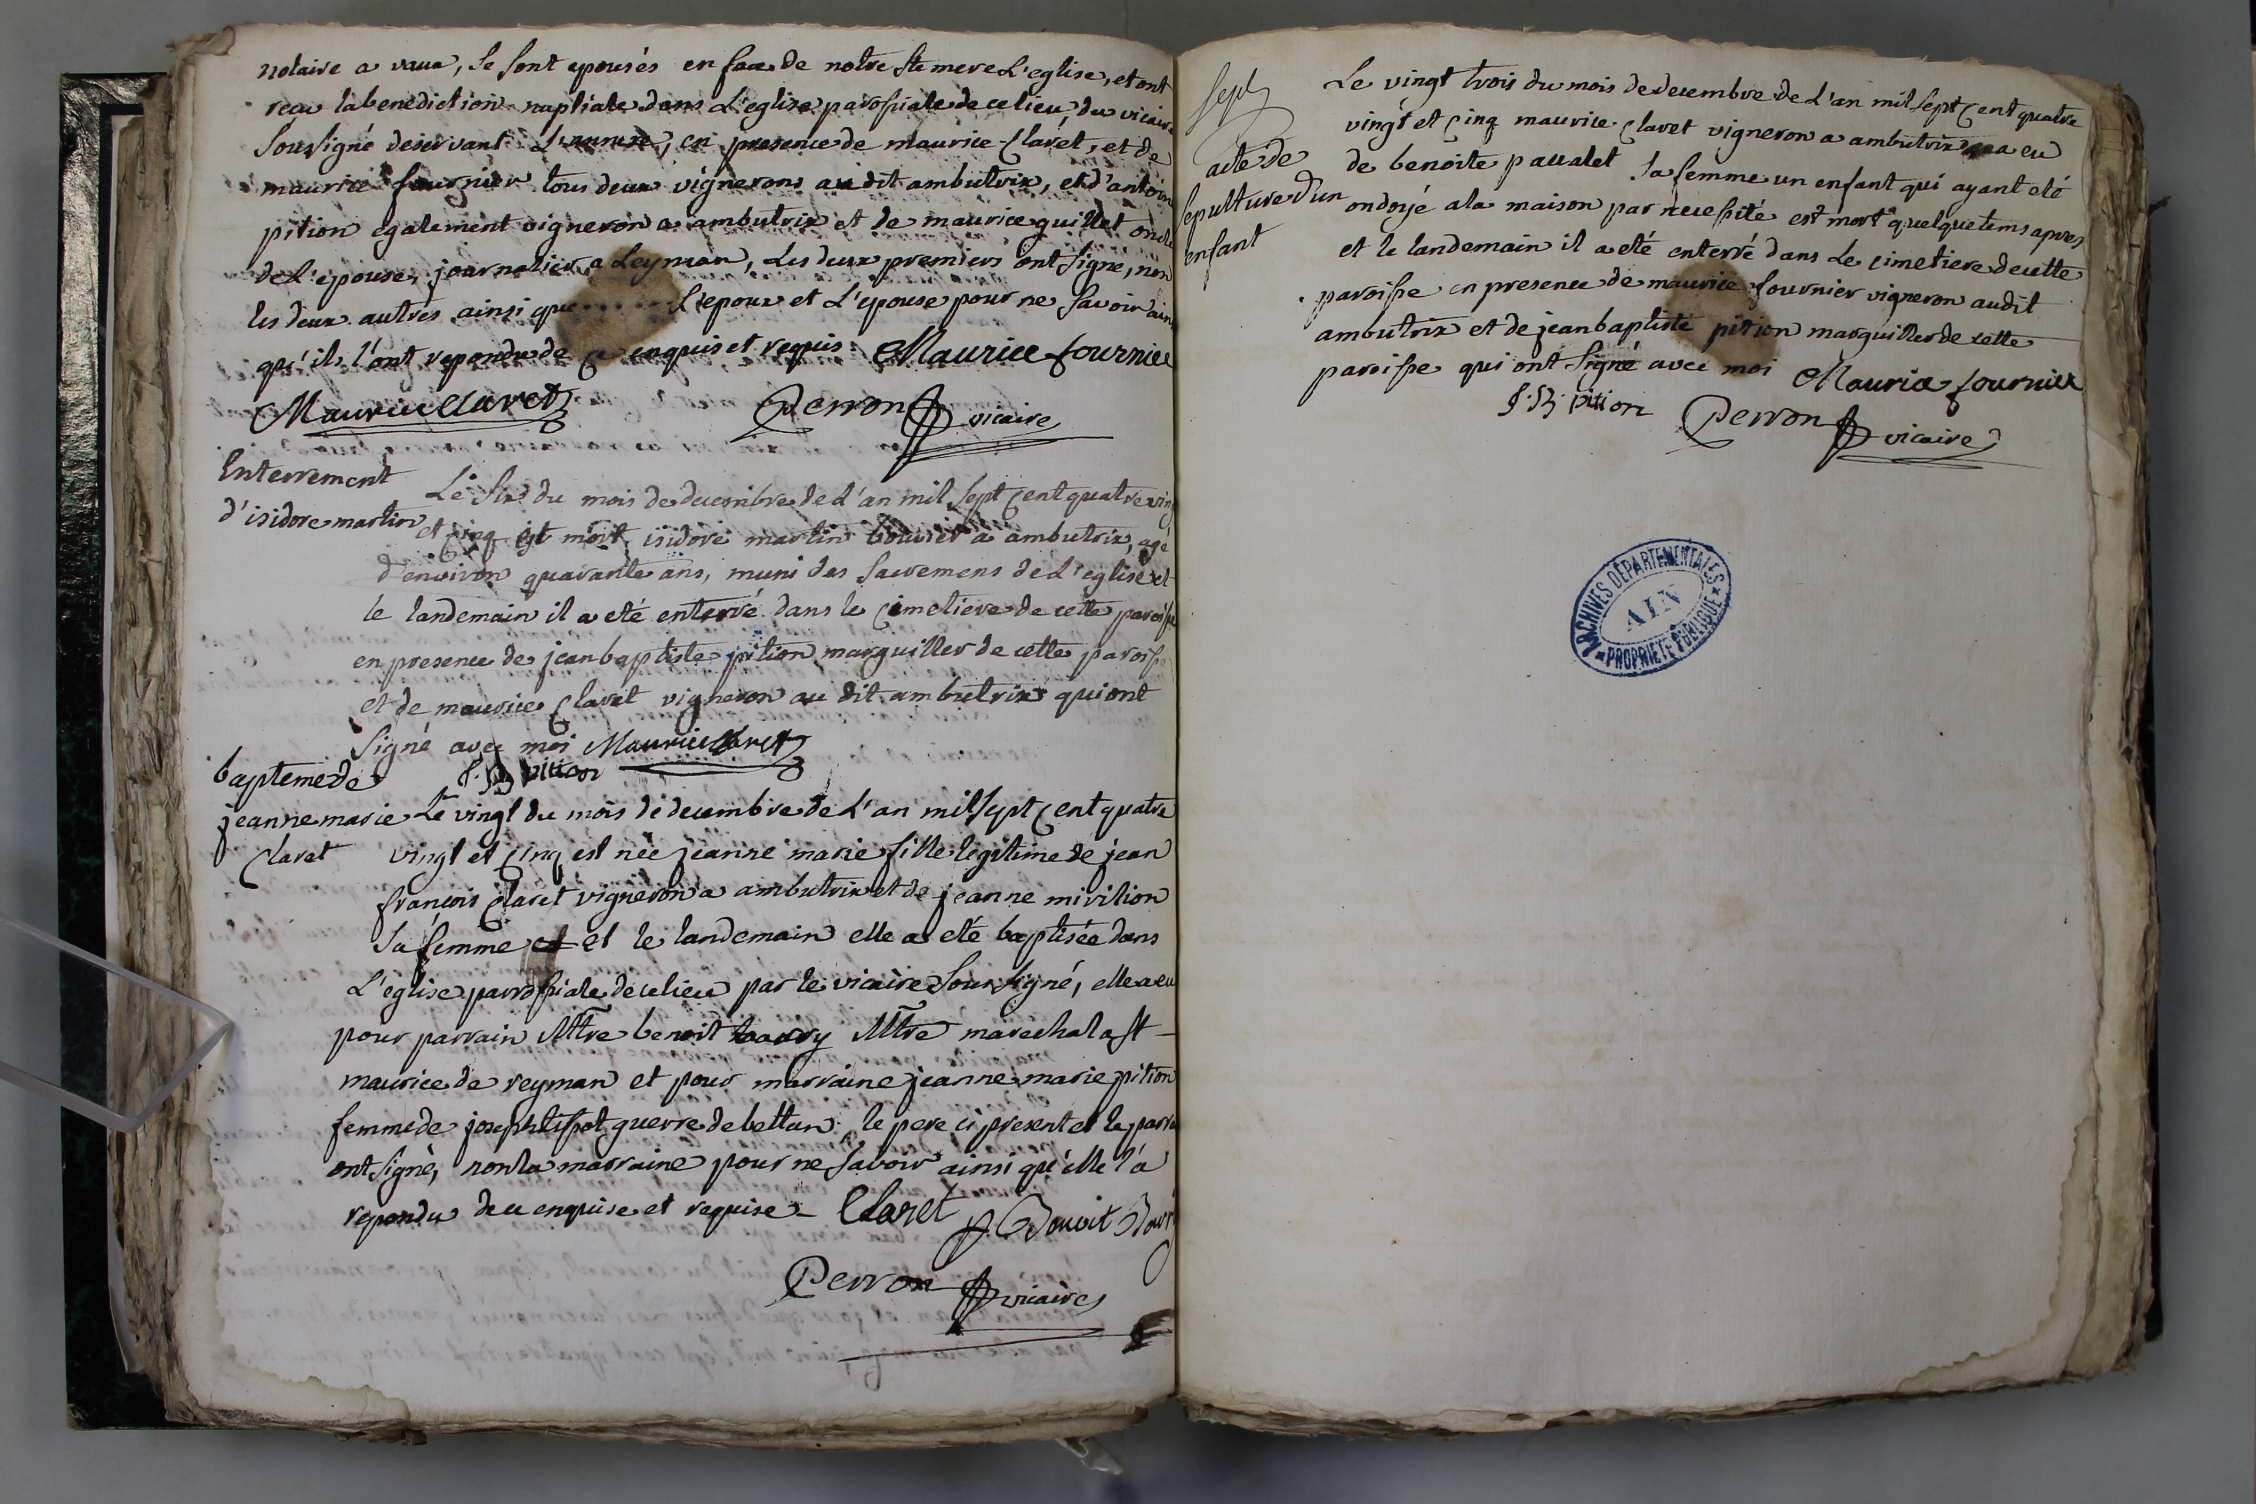 notaire a vaux, se sont epousés en face de notre Ste mere L'eglise, et ont
recu la benediction nuptiale dans L'eglise parossiale de ce lieu, du vicaire
Soussigné deservant L'annexe, en presence de maurice Claret, et de
maurice fournier tous deux vignerons au dit ambutrix, et d'antoine
pition egalement vigneron a ambutrix et de maurice quillet oncle
de L'epouse, journalier a Leyman, Les deux premiers ont signe, non
les deux autres ainsi que L'epoux et L'epouse pour ne savoir ainsi
qu'ils l'ont repondu de ce enquis et requis Maurice fournier
Maurice Claret Perron vicaire
Enterrement
d'isidore martin
Le six du mois de decembre de L'an mil sept Cent quatre ving
et Cinq est mort isidore martin bouvier a ambutrix, agé
d'environ quarante ans, muni des sacremens de L'eglise et
le landemain il a eté enterré dans le Cimetiere de cette paroisse
en presence de jean baptiste pition marguiller de cette paroisse
et de maurice Claret vigneron au dit ambutrix qui ont
Signé avec moi Maurice Claret
J. B. pition
bapteme de
jeanne marie
Claret
Le vingt du mois de decembre de L'an mil sept Cent quatre
vingt et Cinq est née jeanne marie fille legitime de jean
françois Claret vigneron a ambutrix et de jeanne mirition
Sa femme et et le landemain elle a eté baptisée dans
L'eglise parrossiale de ce lieu par le vicaire Soussigné, elle a eu
pour parrain Mtre benoit Mtre marechal a St
maurice de reyman et pour marraine jeanne marie pition
femme de joseph tissot guerre de bettan; le pere ci present et le parra
ont signé, non la marraine pour ne savoir ainsi qu'elle l'a
repondu de ce enquise et requise - Claret Benoit
Perron vicaire
Sept
acte de
sepulture d'un
enfant
Le vingt trois du mois de decembre de L'an mil sept Cent quatre
vingt et Cinq maurice Claret vigneron a ambutrix a eu
de benoite pavalet sa femme un enfant qui ayant eté
ondoyé a la maison par necessité est mort quelque tems apres
et le landemain il a eté enterré dans Le cimetiere de cette
paroisse en presence de maurice fournier vigneron au dit
ambutrix et de jean baptiste pition marguiller de cette
paroisse qui ont Signé avec moi Maurice fournier
J. B. pition Perron vicaire
ARCHIVES DÉPARTEMENTALES
AIN
PROPRIÉTÉ PUBLIQUE